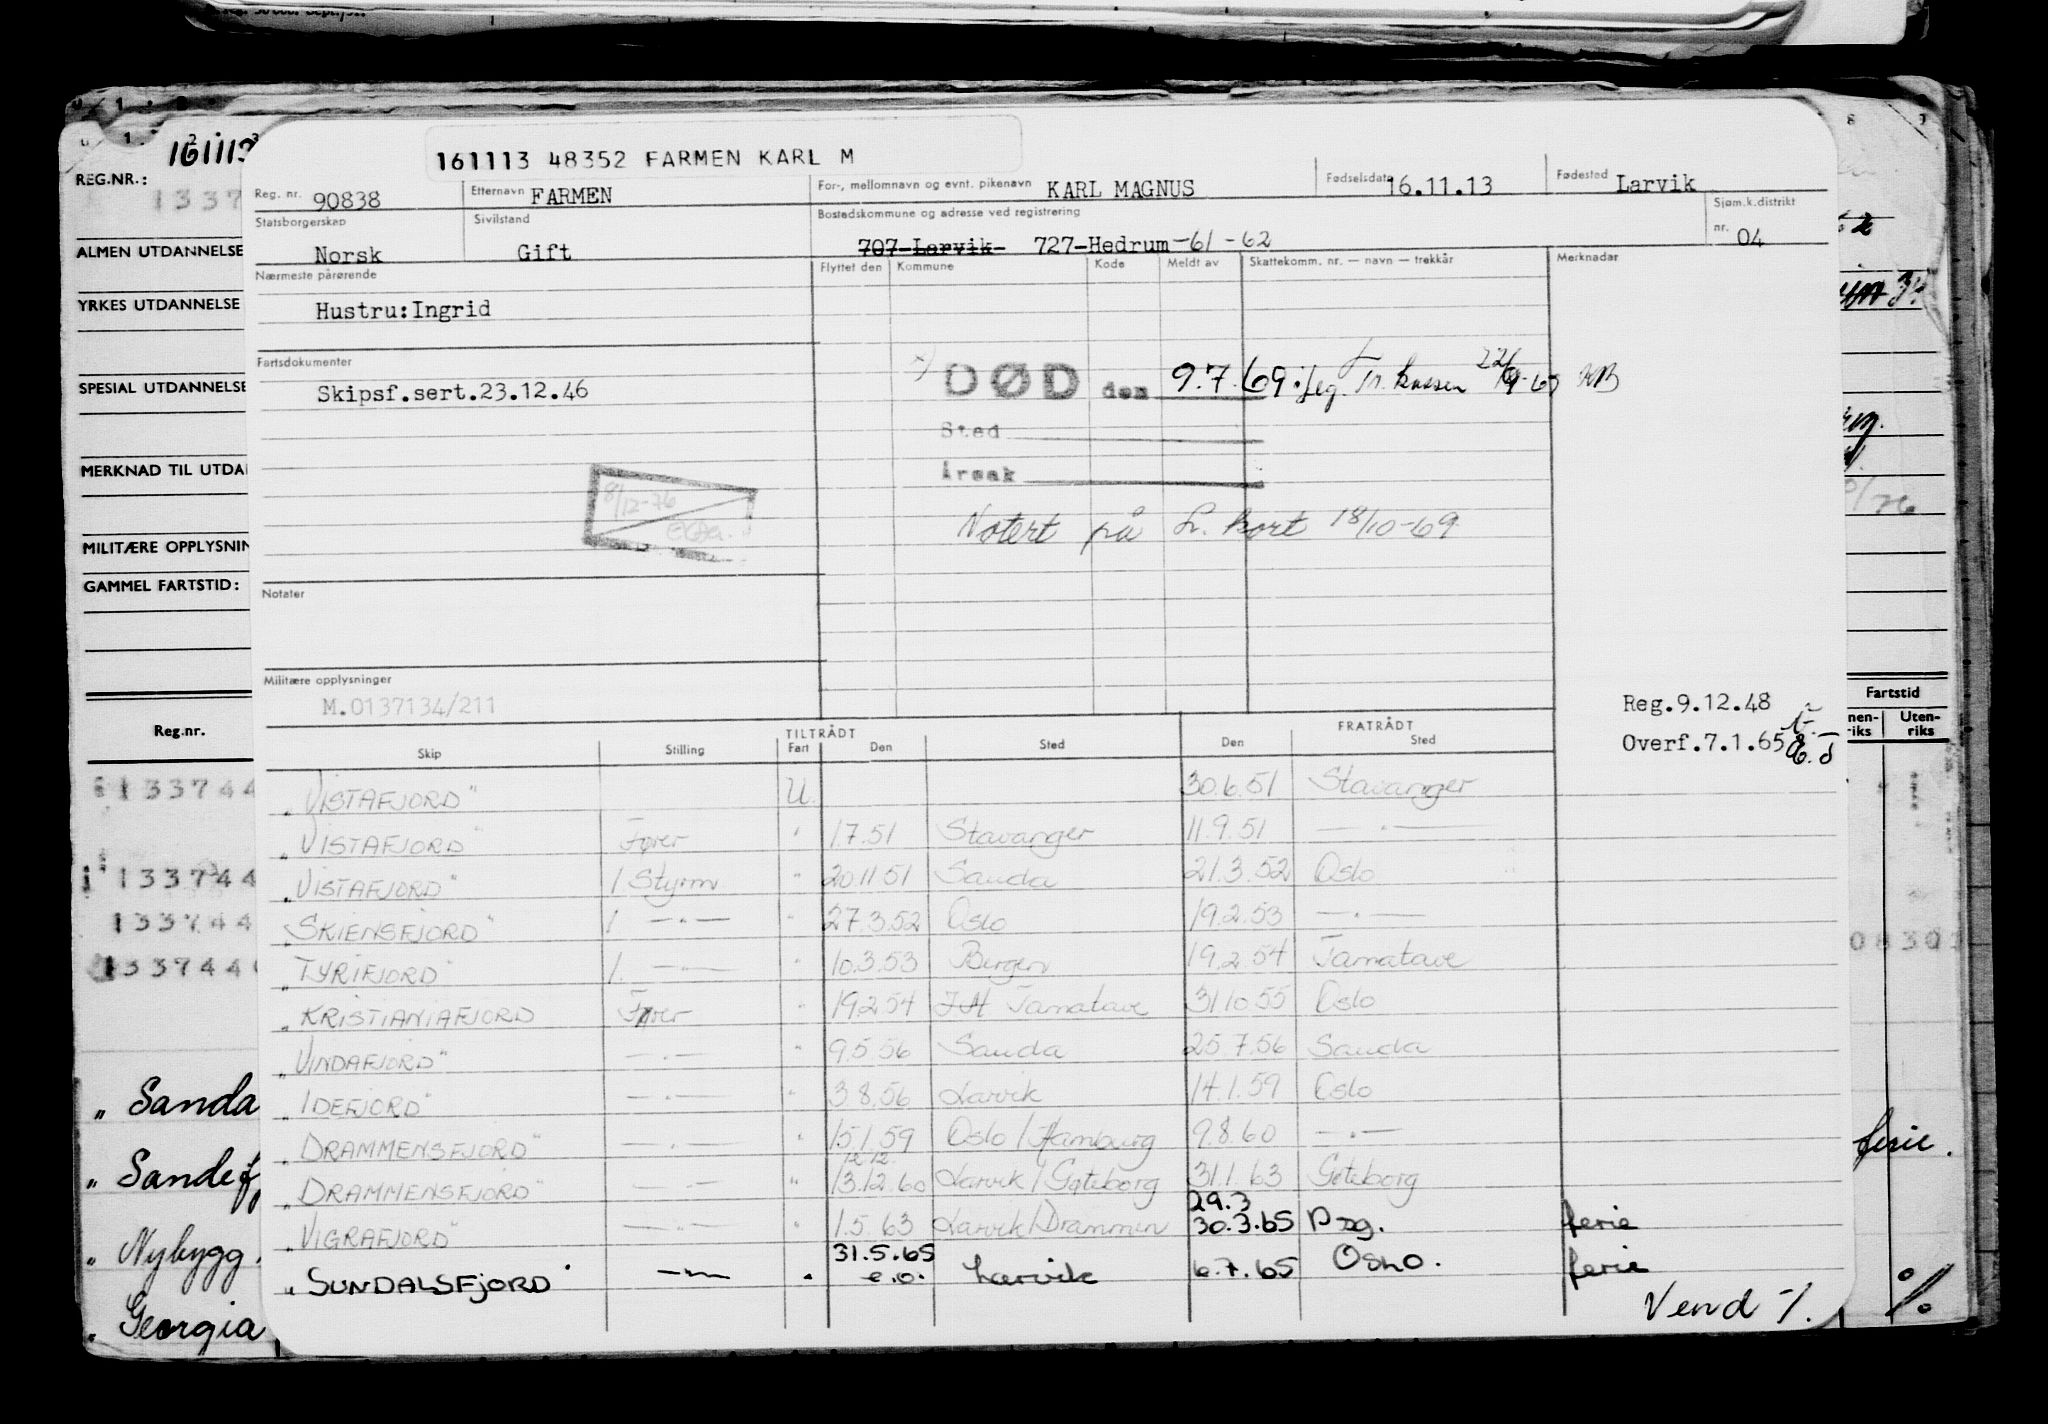 161113
161113 48352 FARMEN KARL M
REG.NR.:
Reg. nr. 90838 Etternavn FARMEN For-, mellomnavn og evnt. pikenavn KARL MAGNUS Fødselsdato 16.11.13 Fødested Larvik
Statsborgerskap Norsk Sivilstand Gift Bostedskommune og adresse ved registrering 707-Larvik- 727-Hedrum -61-62 Sjøm.k.distrikt nr. 04
ALMEN UTDANNELSE
Nærmeste pårørende Flyttet den Kommune Kode Meldt av Skattekomm. nr. — navn — trekkår Merknader
YRKES UTDANNELSE
Hustru:Ingrid
Fartsdokumenter
SPESIAL UTDANNELSE
Skipsf.sert.23.12.46
DØD den 9.7.69 Tr. kassen KB
Sted
Årsak
MERKNAD TIL UTDA
8/12-76
Notert på L. kort 18/10-69
MILITÆRE OPPLYSNIN
GAMMEL FARTSTID:
Notater
Militære opplysninger
M.0137134/211
Reg.9.12.48
Overf.7.1.65
Fartstid
Uten-riks
Reg.nr.
TILTRÅDT FRATRÅDT
Skip Stilling Fart Den Sted Den Sted
"VISTAFJORD" U. 30.6.51 Stavanger
"VISTAFJORD" Fører " 1.7.51 Stavanger 11.9.51 —"—
"VISTAFJORD" 1 Styrm " 20.11.51 Sauda 21.3.52 Oslo
"SKIENSFJORD" 1 —"— " 27.3.52 Oslo 19.2.53 —"—
"TYRIFJORD" 1. —"— " 10.3.53 Bergen 19.2.54 Tamatave
"KRISTIANIAFJORD Fører " 19.2.54 Tamatave 31.10.55 Oslo
"VINDAFJORD" —"— " 9.5.56 Sauda 25.7.56 Sauda
"IDEFJORD" —"— " 3.8.56 Larvik 14.1.59 Oslo
"DRAMMENSFJORD" —"— " 15.1.59 Oslo/Hamburg 9.8.60 —"—
"DRAMMENSFJORD" —"— " 12.12. 13.12.60 Larvik/Gøteborg 31.1.63 Gøteborg
"VIGRAFJORD" —"— " 1.5.63 Larvik/Drammen 29.3 30.3.65 Psg. ferie
"SUNDALSFJORD" —"— " 31.5.65 e.o. Larvik 6.7.65 OSLO. ferie
Vend ·/.
133744
133744
133744
133744
" Sanda
" Sandef
" Nybygg.
" Georgia
ferie.